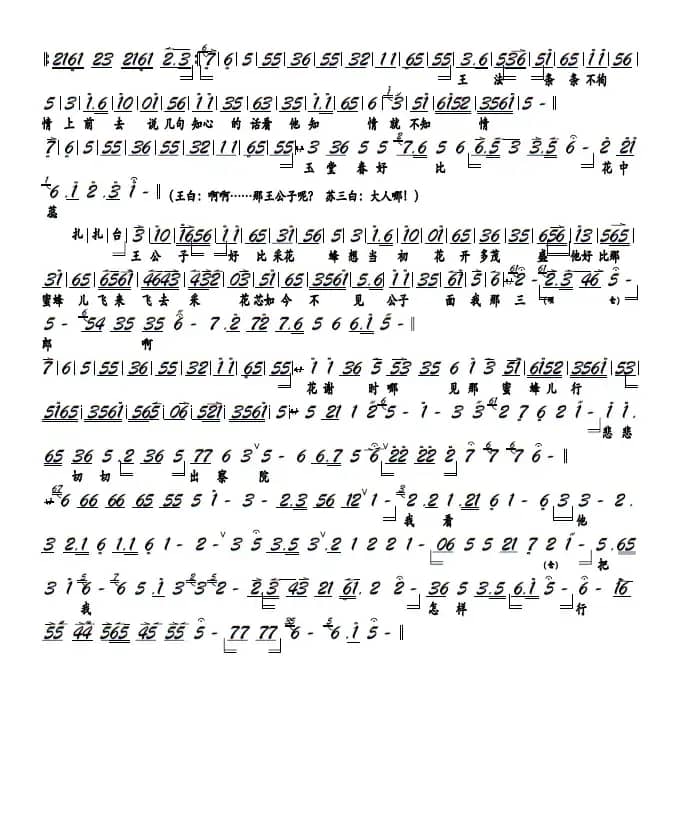 2161 23 2161 2.3 7 | 6 | 5 | 55 | 36 | 55 | 32 | 11 | 65 | 55 | 3.6 | 536 | 51 | 65 | 11 | 56
王 法 条 条 不徇
5 | 3 | 1.6 | 10 | 01 | 56 | 11 | 35 | 63 | 35 | 1.1 | 65 | 6 | 3 | 51 | 6152 | 3561 | 5 - ‖
情 上 前 去 说 几句 知心 的 话看 他 知 情 就 不知 情
7 | 6 | 5 | 55 | 36 | 55 | 32 | 11 | 65 | 55 3 36 5 5 7.6 5 6 6.5 3 3.5 6 - 2 21
玉 堂 春 好 比 花 中
6 .1 2 .3 1 - ‖ (王白：啊啊……那王公子呢? 苏三白：大人哪!)
蕊
扎 | 扎 | 台 3 | 10 | 1656 | 11 | 65 | 35 | 63 | 51 | 56 | 5 | 3 | 1.6 | 10 | 01 | 65 | 36 | 35 | 656 | 13 | 565
王 公 子 好 比 采花 蜂 想 当 初 花 开 多茂 盛 他好 比那
31 | 65 | 6561 | 4643 | 432 | 03 | 51 | 65 | 3561 | 5.6 | 11 | 35 | 61 | 5 | 6 2 - 2.3 46 5 -
蜜蜂 儿 飞来 飞去 采 花芯如今 不 见 公子 面 我 那 三
5 - 54 35 35 6 - 7 .2 72 7.6 5 6 6.1 5 - ‖
郎 啊
7 | 6 | 5 | 55 | 36 | 55 | 32 | 11 | 65 | 55 1 1 36 5 53 35 6 1 3 51 | 6152 | 3561 | 53
花谢 时哪 见 那 蜜 蜂 儿 行
5165 | 3561 | 565 | 06 | 521 | 3561 | 5 5 21 1 2 5 - 1 - 3 3 2 7 6 2 1 - 1 1.
悲 悲
65 36 5 .2 36 5 .5 77 6 3 5 - 6 6.7 5 6 22 22 2 7 7 7 6 - ‖
切 切 出 察 院
6 66 66 65 55 5 1 - 3 - 2.3 56 12 1 - 2 .2 1 .21 6 1 - 6 3 3 - 2 .
我 看 他
3 2.1 6 1.1 6 1 - 2 - 3 5 3.5 3 .2 1 2 2 1 - 06 5 5 21 7 2 1 - 5 .65
把
3 1 6 - 6 5 .1 3 3 2 - 2.3 43 21 61 .2 2 - 36 5 3.5 6.1 5 - 6 - 16
我 怎 样 行
55 44 565 45 55 5 - 77 77 6 - 6 .1 5 - ‖